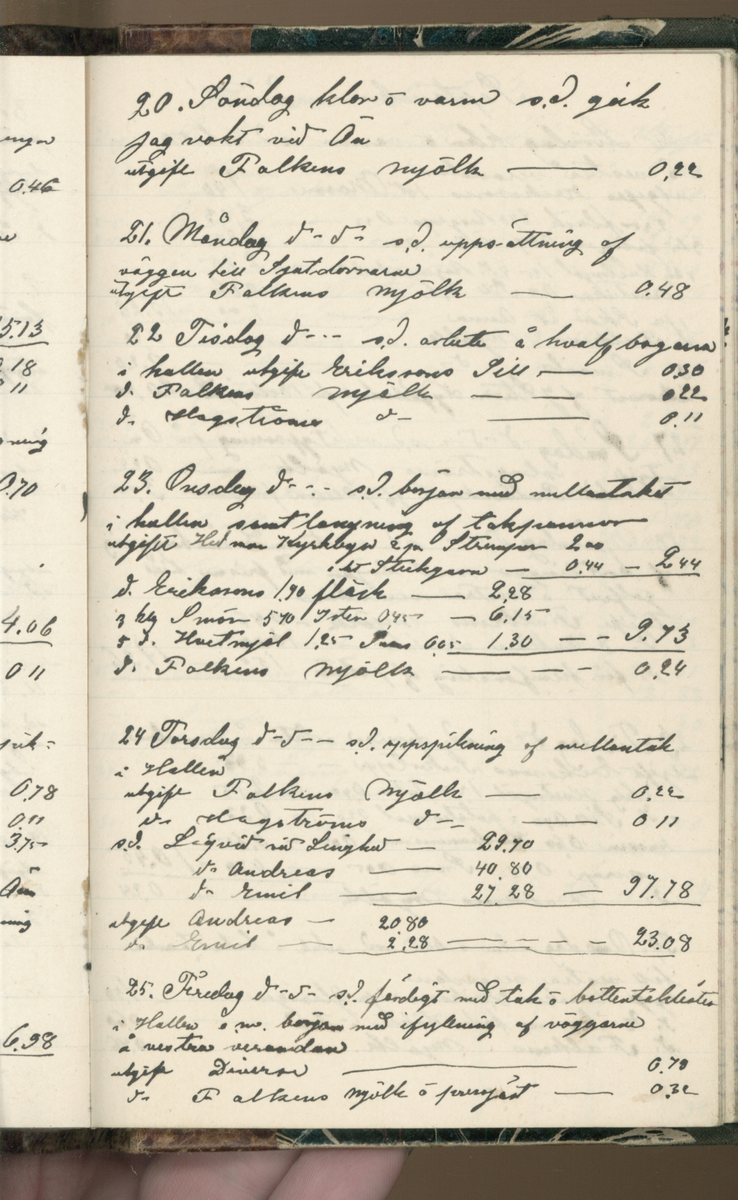 ngn
0.46
5.13
.18
11
ning
0.70
4.06
0 11
0.78
0.11
3.75
Ån
ning
6.98
20. Söndag klar ō varm s.d. gick
jag vakt vid Ån
utgift Falkens mjölk — 0,22
21. Måndag d-d- s.d. uppsättning af
väggen till
utgift Falkens mjölk — 0.48
22 Tisdag d--- s.d. arbete å hvalfbogarna
i hallen utgift Erikssons Sill — 0.30
d. Falkens mjölk — — 0.22
d. Hagströms d- — 0.11
23. Onsdag d--- s.d. början med mellantaket
i hallen samt langning af takpannor
utgift Hedman Kyrkbyn 2 pr Strumpor 2.00
Stickgarn — 0.44 — 2.44
d. Erikssons 1.90 fläsk — 2.28
3 kg Smör 5.70 Isten 0.45 — 6.15
5 d. Hvetmjöl 1.25 0.05 1.30 — — 9.73
d. Falkens mjölk — — — 0.24
24 Torsdag d-d-- s.d. uppspikning af mellantak
i Hallen
utgift Falkens mjölk — 0.22
d- Hagströms d-- — 0 11
s.d. Liqvid vid Linghed — 29.70
d- Andreas — 40.80
d- Emil — 27.28 — 97.78
utgift Andreas — 20.80
d. Emil — 2.28 — — — — 23.08
25. Fredag d-d- s.d. färdigt med tak ō
i Hallen s.m. började med ifyllning af väggarne
å vestra verandan
utgift Diverse — 0.79
d- Falkens mjölk ō pressjäst — 0.32